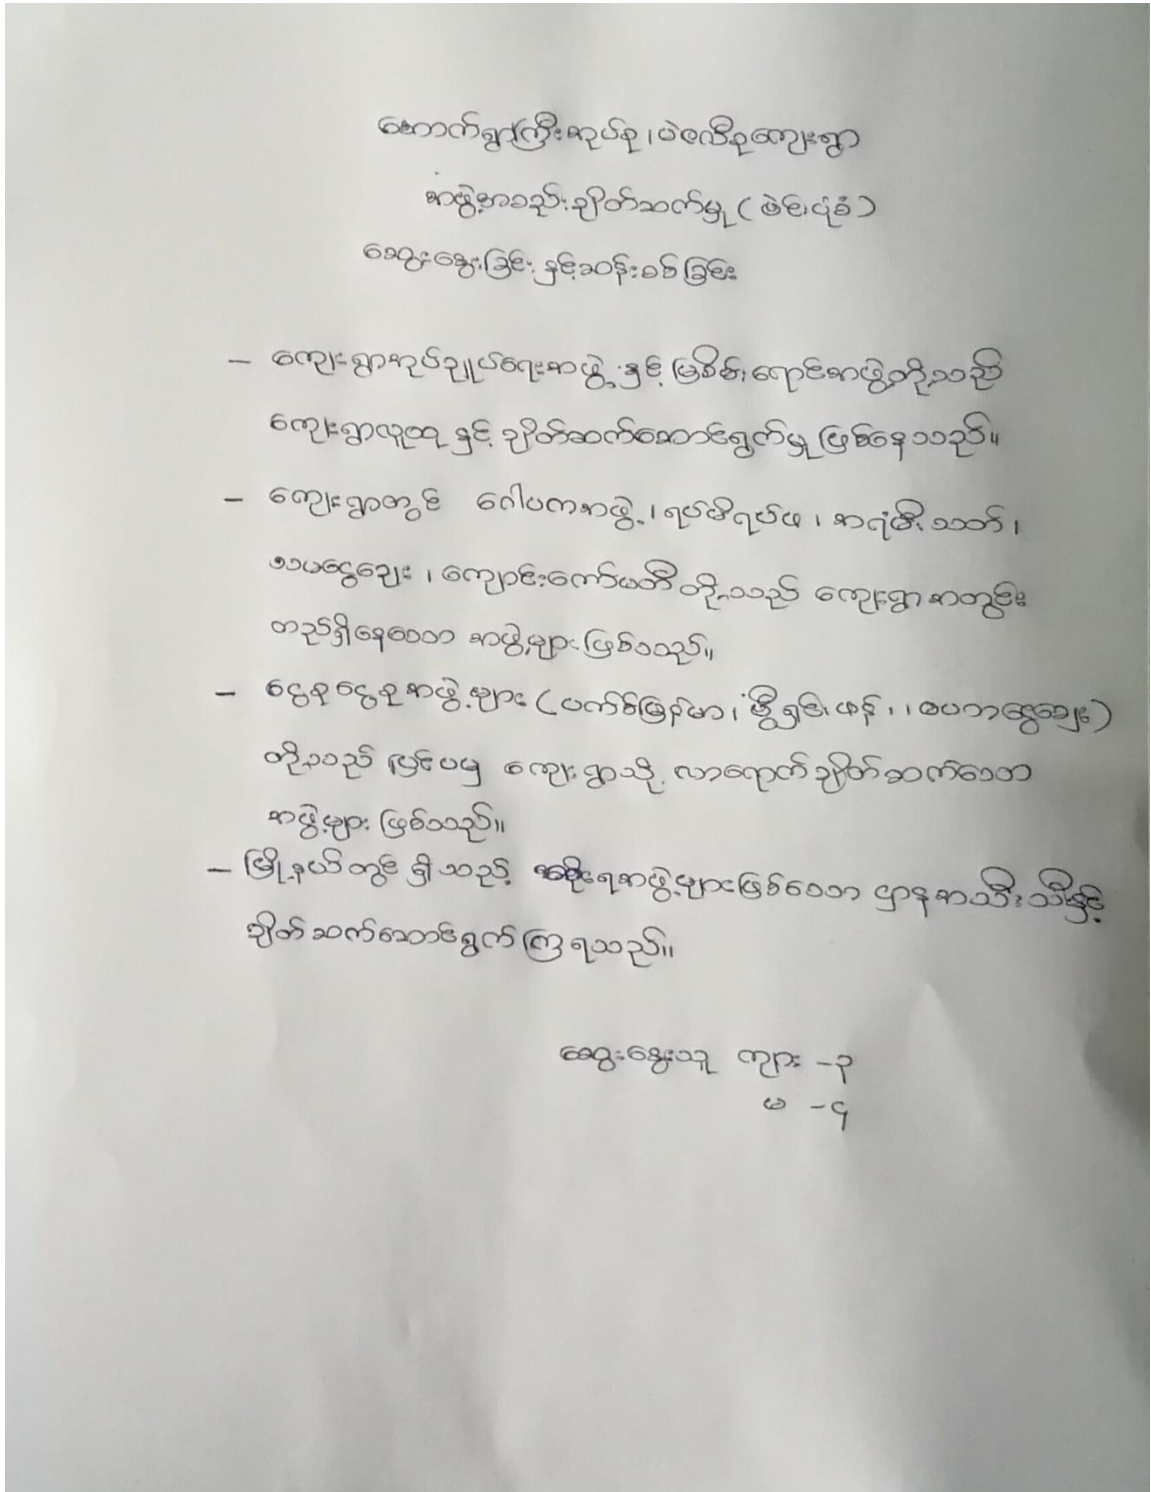 အောက်ရွာကြီးအုပ်စု၊ ပဲဇလီစုကျေးရွာ
အဖွဲ့အစည်းချိတ်ဆက်မှု ( ဖဲင်းပုံစံ )
ဆွေးနွေးခြင်း နှင့်ဆန်းစစ်ခြင်း
– ကျေးရွာအုပ်ချုပ်ရေးအဖွဲ့ နှင့် မြစိမ်းရောင်အဖွဲ့တို့သည်
ကျေးရွာလူထု နှင့် ချိတ်ဆက်ဆောင်ရွက်မှု ဖြစ်နေသည်။
– ကျေးရွာတွင် ဂေါပကအဖွဲ့၊ ရပ်မိရပ်ဖ ၊ အရံမီးသတ် ၊
သမငွေချေး ၊ ကျောင်းကော်မတီ တို့သည် ကျေးရွာ အတွင်း
တည်ရှိနေသော အဖွဲ့များ ဖြစ်သည်။
– ငွေစုငွေစုအဖွဲ့များ ( ပက်စ်မြန်မာ ၊ မျှီရှင်းဖန် ၊ ၊ စပဘငွေချေး )
တို့သည် ပြင်ပမှ ကျေးရွာသို့ လာရောက်ချိတ်ဆက်သော
အဖွဲ့များ ဖြစ်သည်။
– မြို့နယ်တွင် ရှိသည့် အစိုးရအဖွဲ့များဖြစ်သော ဌာနအသီးသီးနှင့်
ချိတ်ဆက်ဆောင်ရွက်ကြရသည်။
ဆွေးနွေးသူ ကျား –၃
မ –၄